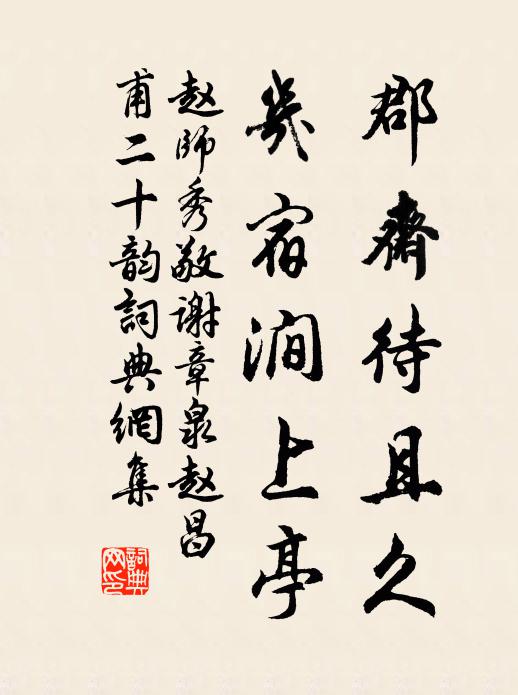 郡齋待且久
幾宿澗上亭
赵師秀敬谢章泉赵昌
甫二十韵詞典網集
詞典网印